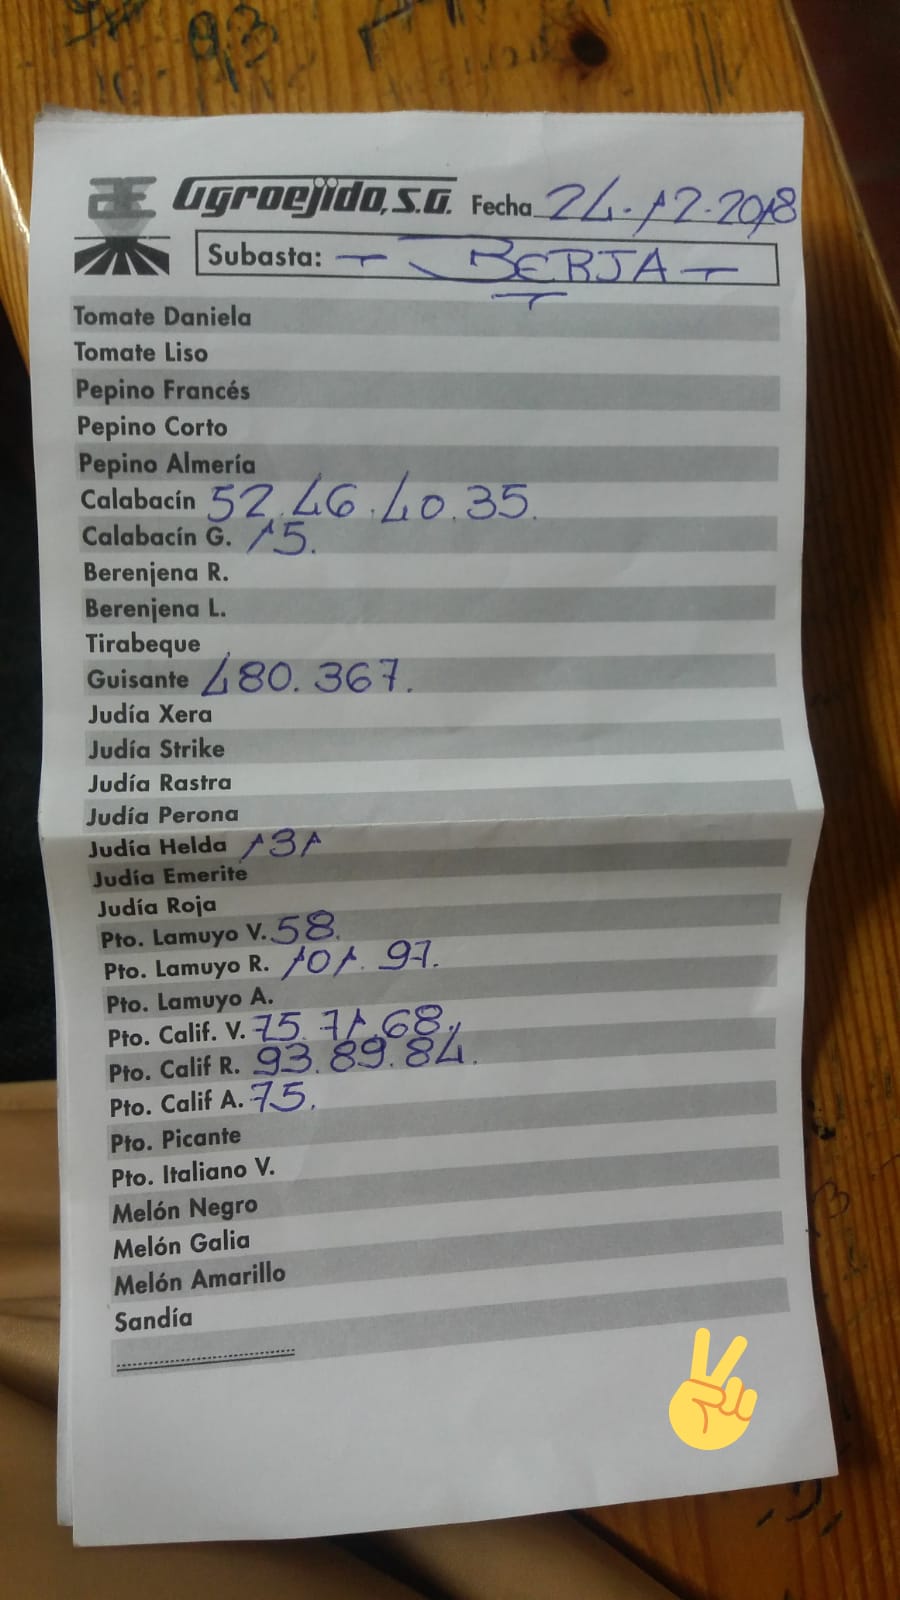 Agroejido, S.A. Fecha 24-12-2018
Subasta: - BERJA -
Tomate Daniela
Tomate Liso
Pepino Francés
Pepino Corto
Pepino Almería
Calabacín 52.46.40.35.
Calabacín G. 15.
Berenjena R.
Berenjena L.
Tirabeque
Guisante 480. 367.
Judía Xera
Judía Strike
Judía Rastra
Judía Perona
Judía Helda 131
Judía Emerite
Judía Roja
Pto. Lamuyo V. 58.
Pto. Lamuyo R. 101. 97.
Pto. Lamuyo A.
Pto. Calif. V. 75. 71. 68.
Pto. Calif R. 93. 89. 84.
Pto. Calif A. 75.
Pto. Picante
Pto. Italiano V.
Melón Negro
Melón Galia
Melón Amarillo
Sandía